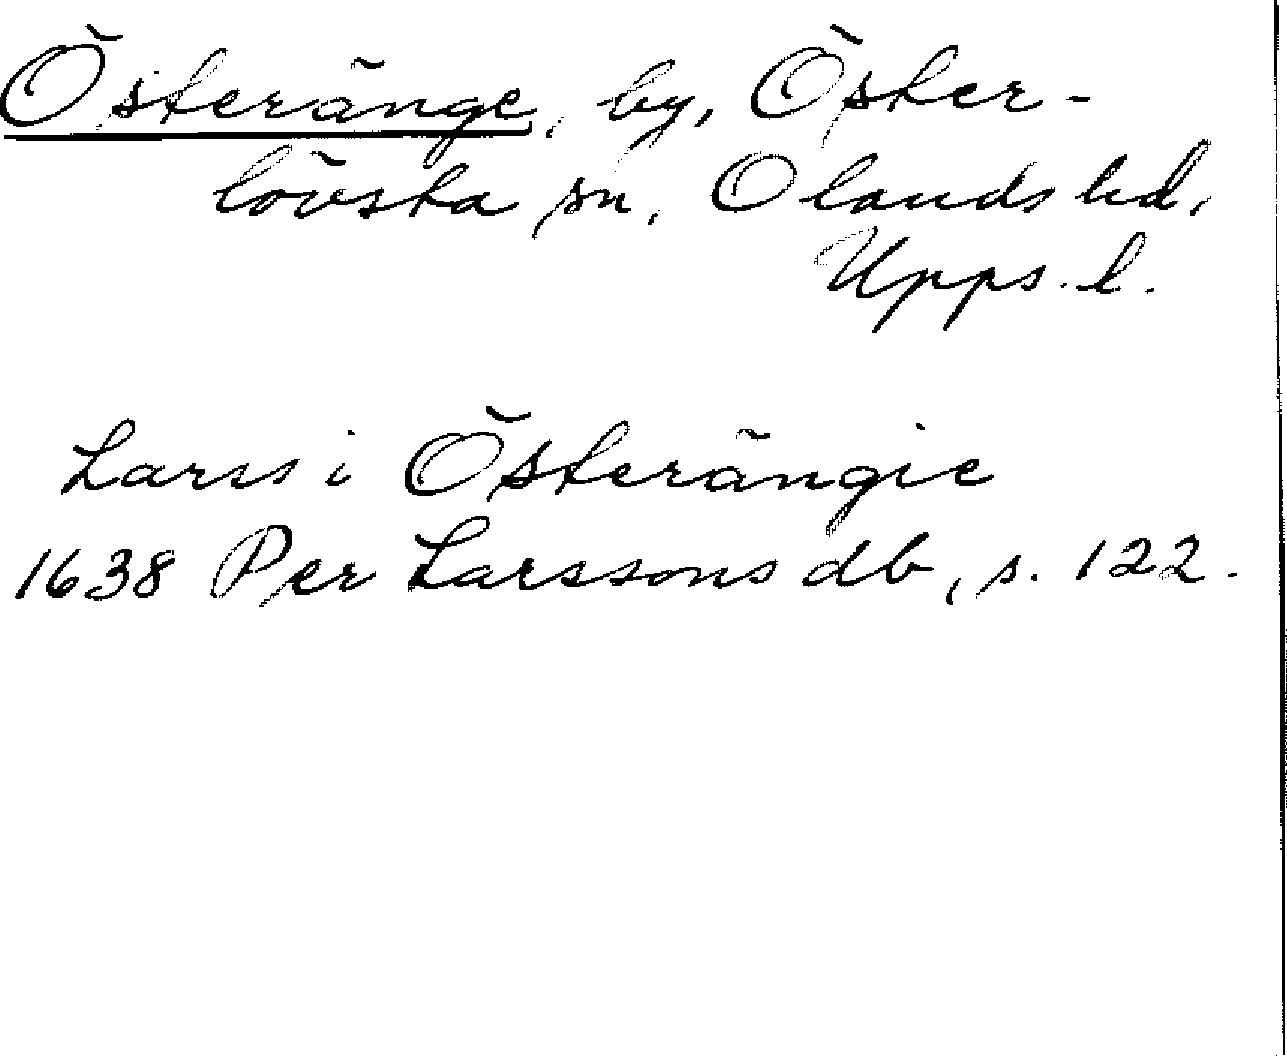 Österänge, by, Öster-
lövsta sn, Olands hd,
Upps. l.
Larss i Österängie
1638 Per Larssons db, s. 122.